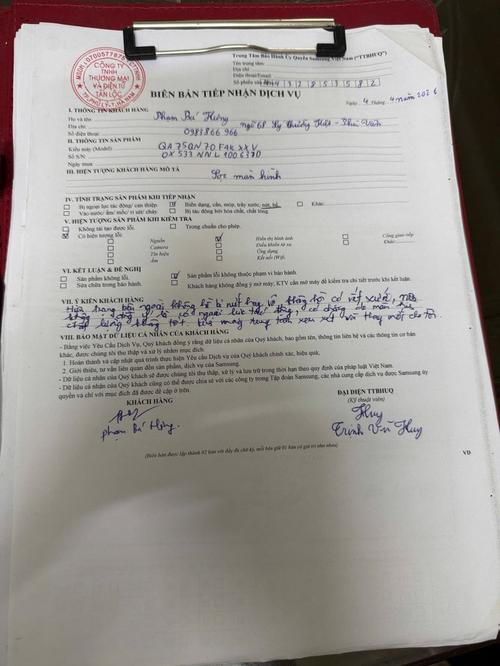 MSDN: 0700577875
CÔNG TY
TNHH
THƯƠNG MẠI
VÀ ĐIỆN TỬ
TÂN LỘC
TP. PHỦ LÝ - T. HÀ NAM
Trung Tâm Bảo Hành Ủy Quyền Samsung Việt Nam ("TTBHUQ")
Tên trung tâm:
Địa chỉ:
Điện thoại/Email:
Số phiếu sửa
BIÊN BẢN TIẾP NHẬN DỊCH VỤ
Ngày 4 Tháng 4 năm 2026
I. THÔNG TIN KHÁCH HÀNG
Họ và tên : Phạm Bá Hưng
Địa chỉ : ngõ 68 Lý Thường Kiệt -
Số điện thoại : 0983866 966
II. THÔNG TIN SẢN PHẨM
Kiểu máy (Model) : QA75QN70FAKXXV
Số S/N : 0X533NNL
Ngày mua :
III. HIỆN TƯỢNG KHÁCH HÀNG MÔ TẢ
Sọc màn hình
IV. TÌNH TRẠNG SẢN PHẨM KHI TIẾP NHẬN
Bị ngoại lực tác động/ can thiệp. Biến dạng, cấn, móp, trầy xước, nứt, bể. Khác:
Vào nước/ ẩm/ mốc/ rỉ sét/ cháy. Bị tác động bởi hóa chất, chất lỏng.
V. HIỆN TƯỢNG SẢN PHẨM KHI KIỂM TRA
Không tái tạo được lỗi. Trong chuẩn cho phép.
Có hiện tượng lỗi:
Nguồn Hiển thị hình ảnh Cổng giao tiếp
Camera Điều khiển từ xa Khác:
Tín hiệu Ứng dụng
Âm Kết nối (Wifi,
VI. KẾT LUẬN & ĐỀ NGHỊ
Sản phẩm không lỗi. Sản phẩm lỗi không thuộc phạm vi bảo hành.
Sửa chữa trong bảo hành. Khách hàng không đồng ý mở máy; KTV cần mở máy để kiểm tra chi tiết trước khi kết luận.
VII. Ý KIẾN KHÁCH HÀNG
bên ngoài không bị nứt hay vỡ
không có
chất lượng không tốt
VIII. BẢO MẬT DỮ LIỆU CÁ NHÂN CỦA KHÁCH HÀNG
- Bằng việc Yêu Cầu Dịch Vụ, Quý khách đồng ý rằng dữ liệu cá nhân của Quý khách, bao gồm tên, thông tin liên hệ và các thông tin cơ bản
khác, được chúng tôi thu thập và xử lý nhằm mục đích:
1. Hoàn thành và cập nhật quá trình thực hiện Yêu cầu Dịch vụ của Quý khách chính xác, hiệu quả;
2. Giới thiệu, tư vấn liên quan đến sản phẩm, dịch vụ của Samsung.
- Dữ liệu cá nhân của Quý khách sẽ được chúng tôi thu thập, xử lý và lưu trữ trong thời hạn theo quy định của pháp luật Việt Nam.
- Dữ liệu cá nhân của Quý khách cũng có thể được chia sẻ với các công ty trong Tập đoàn Samsung, các nhà cung cấp dịch vụ được Samsung ủy
quyền và chỉ với mục đích đã được đề cập ở trên.
KHÁCH HÀNG ĐẠI DIỆN TTBHUQ
(Kỹ thuật viên)
Huy
phạm Bá Hưng. Trịnh Văn Huy
(Biên bản được lập thành 02 bản với đầy đủ chữ ký, mỗi bên giữ 01 bản có giá trị như nhau)
VD